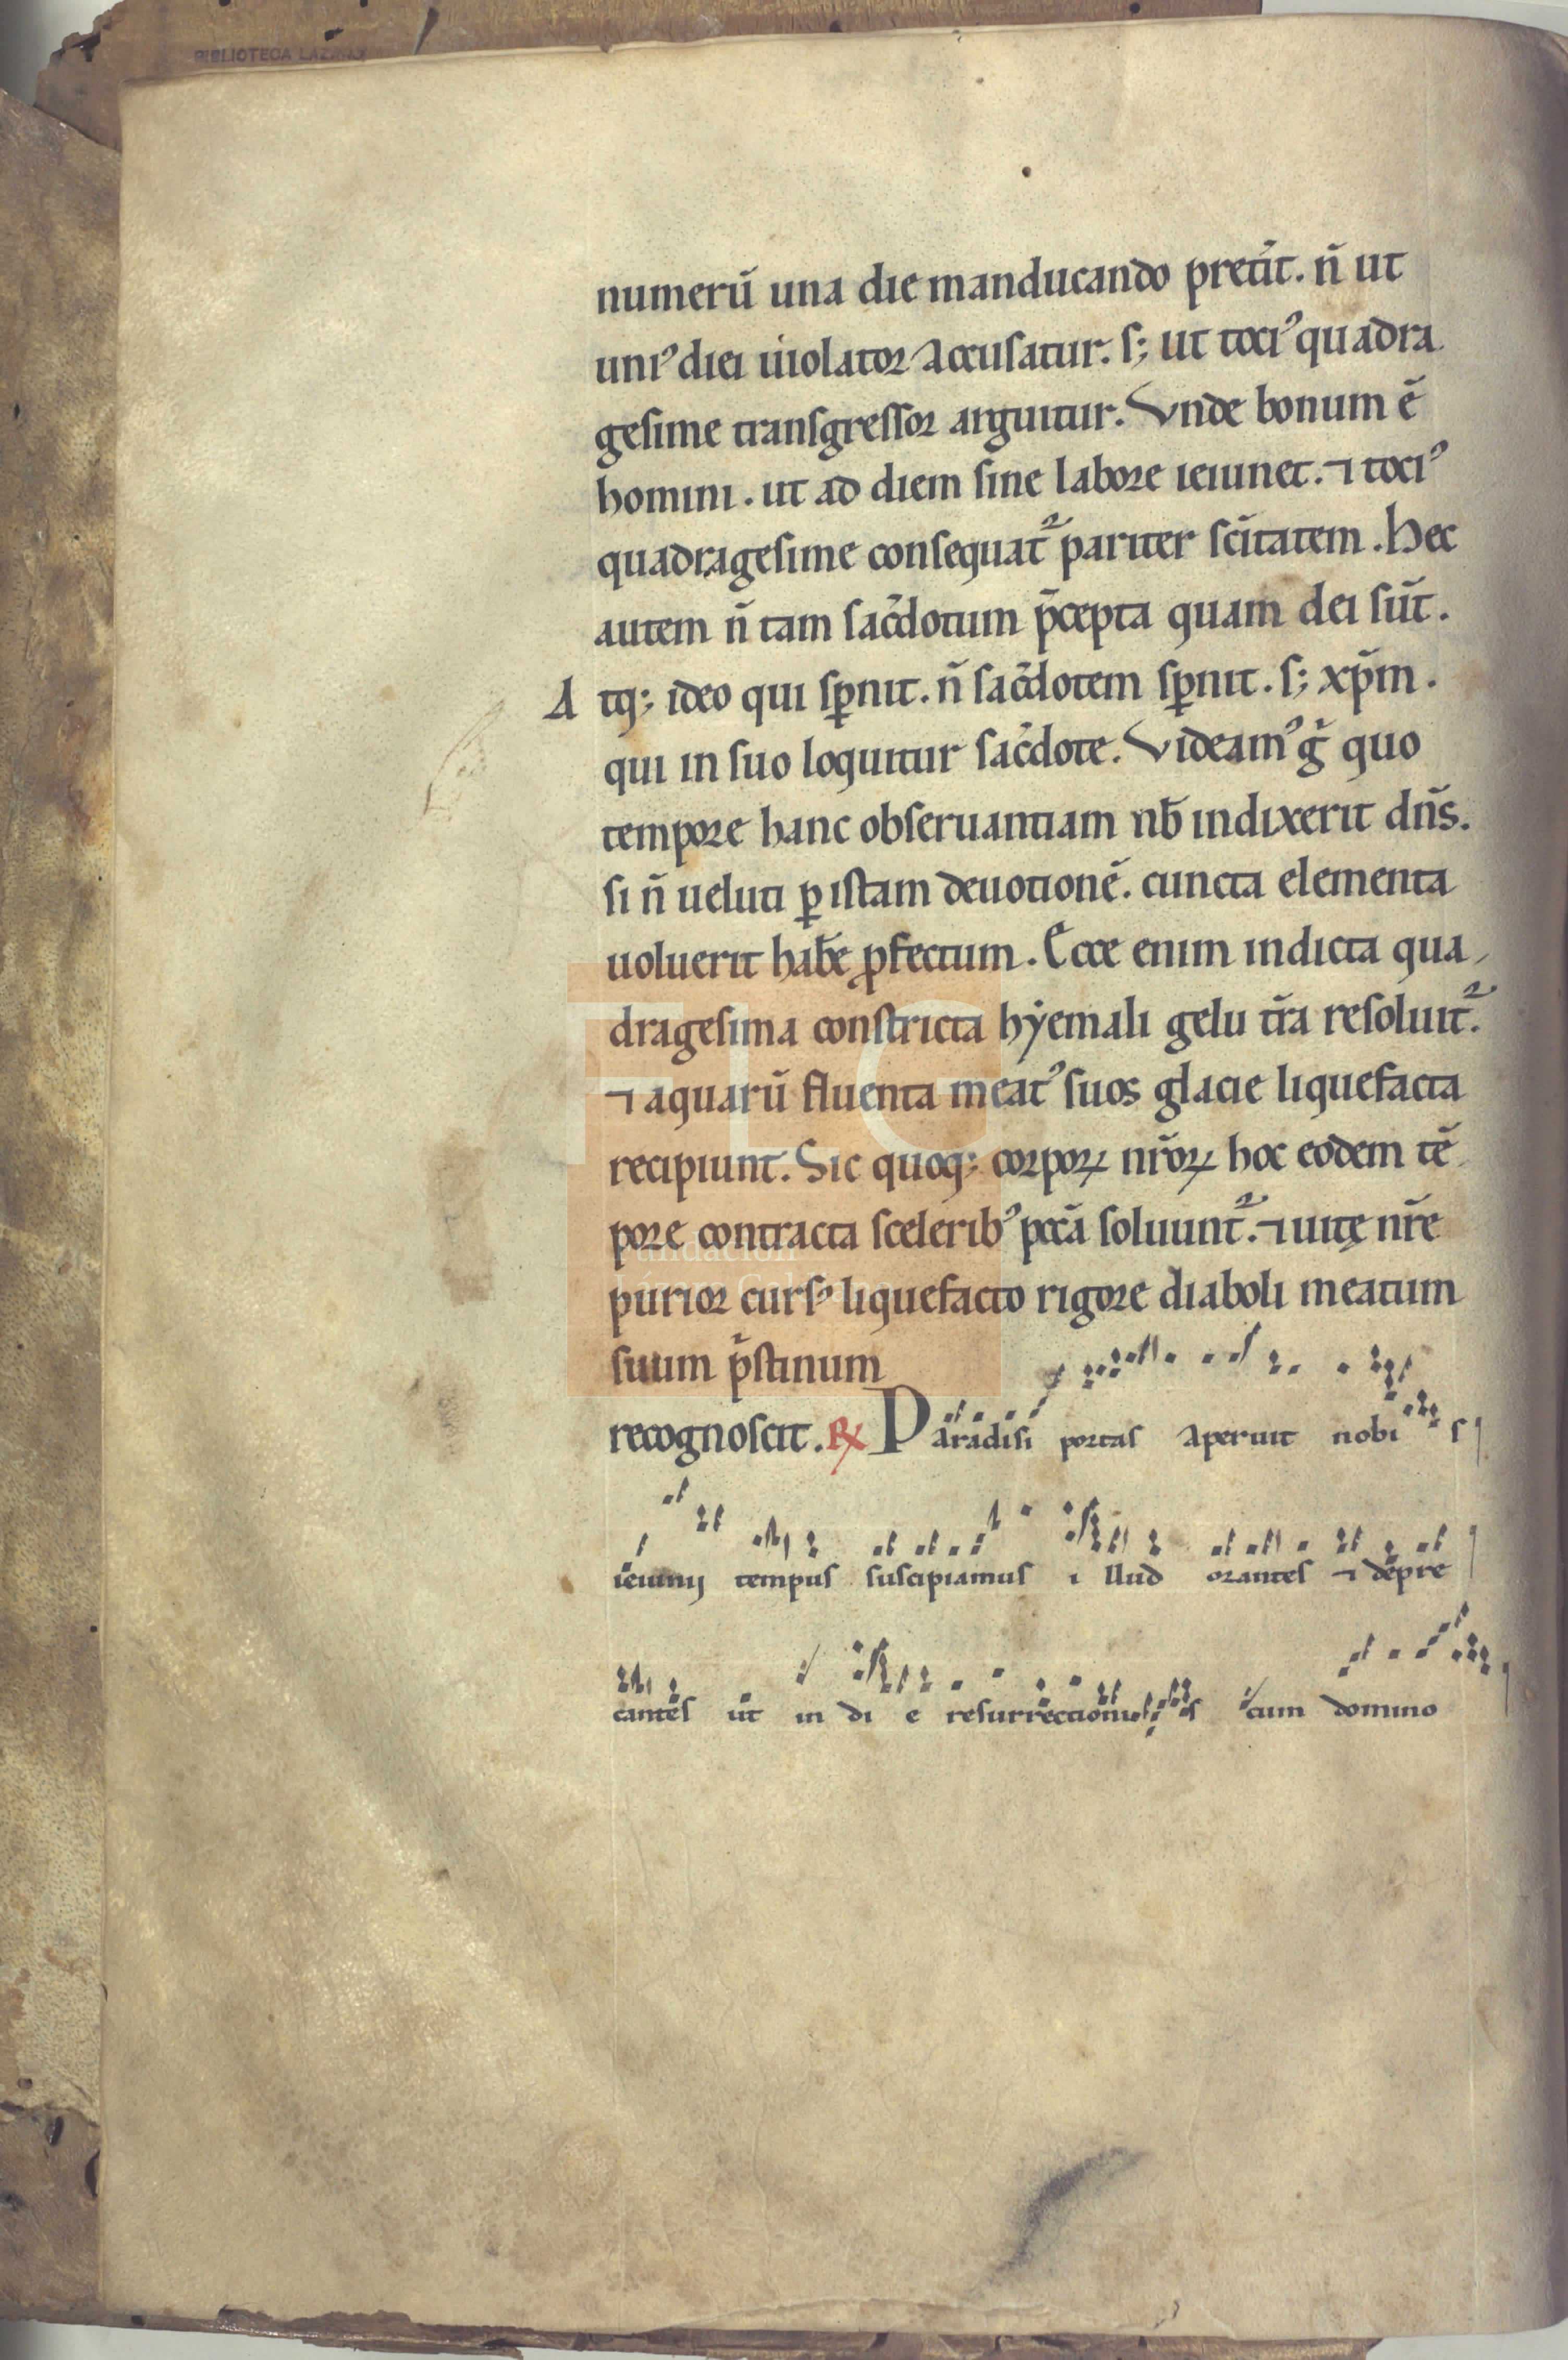 BIBLIOTECA LAZARO
numerū una die manducando pret̃it. n̄ ut
uniꝰ diei uiolator accusatur. s; ut tociꝰ quadra
gesime transgressor arguitur. Unde bonum ē
homini. ut ad diem sine labore ieiunet. ⁊ tociꝰ
quadragesime consequat᷑ pariter sc̄itatem. Hec
autem n̄ tam sac̄dotum p̄cepta quam dei sūt.
Atq; ideo qui sꝑnit. n̄ sac̄dotem sꝑnit. s; xp̄m.
qui in suo loquitur sac̄dote. Videamꝰ g̊ quo
tempore hanc obseruantiam nb̄ indixerit dn̄s.
si n̄ ueluti ꝑ istam deuotionē. cuncta elementa
uoluerit hab̄e ꝓfectum. Ecce enim indicta qua
dragesima constricta hẏemali gelu t̄ra resoluit᷑.
⁊ aquarū fluenta meatꝰ suos glacie liquefacta
recipiunt. Sic quoq; corporꝝ nr̄orꝝ hoc eodem tē
pore contracta sceleribꝰ pccā soluunt᷑. ⁊ uitę nr̄e
purior cursꝰ liquefacto rigore diaboli meatum
suum p̄stinum
recognoscit. R̷ Paradisi portas aperuit nobi s
ieiunij tempus suscipiamus i llud orantes ⁊ depre
cantes ut in di e resurrectionis cum domino
FLG
Fundación
Lázaro Galdiano